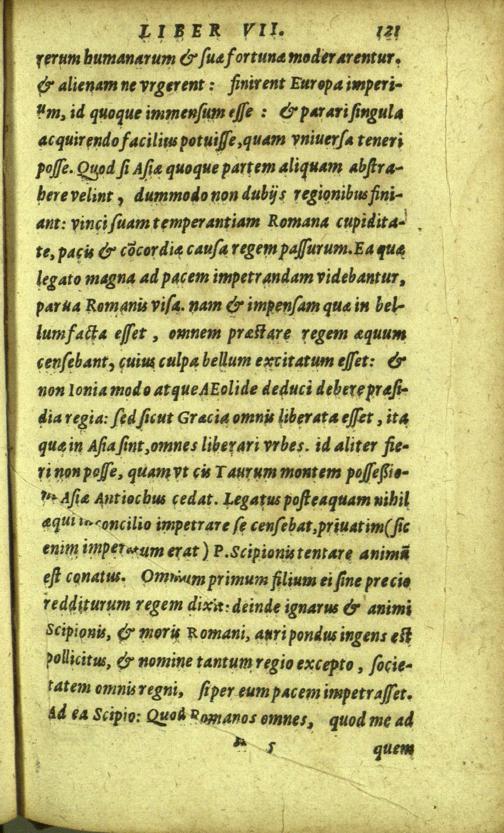 LIBER VII. 121
rerum humanarum & suæ fortunæ moderarentur.
& alienam ne vrgerent: finirent Europa imperi-
um, id quoque immensum esse: & parari singula
acquirendo facilius potuisse, quam vniuersa teneri
posse. Quod si Asiæ quoque partem aliquam abstra-
here velint, dummodo non dubijs regionibus fini-
ant: vinci suam temperantiam Romana cupidita-
te, pacis & cõcordiæ causa regem passurum. Ea quæ
legato magna ad pacem impetrandam videbantur,
parua Romanis visa. nam & impensam quæ in bel-
lum facta esset, omnem præstare regem æquum
censebant, cuius culpa bellum excitatum esset: &
non Ionia modo atque AEolide deduci debere præsi-
dia regia: sed sicut Græcia omnis liberata esset, ita
quæ in Asia sint, omnes liberari vrbes. id aliter fie-
ri non posse, quam vt cis Taurum montem possessio-
Asiæ Antiochus cedat. Legatus posteaquam nihil
æqui concilio impetrare se censebat, priuatim (sic
enim imperatum erat) P. Scipionis tentare animũ
est conatus. Omnium primum filium ei sine precio
redditurum regem dixit: deinde ignarus & animi
Scipionis, & moris Romani, auri pondus ingens est
pollicitus, & nomine tantum regio excepto, socie-
tatem omnis regni, si per eum pacem impetrasset.
Ad ea Scipio: Quod Romanos omnes, quod me ad
5 quem